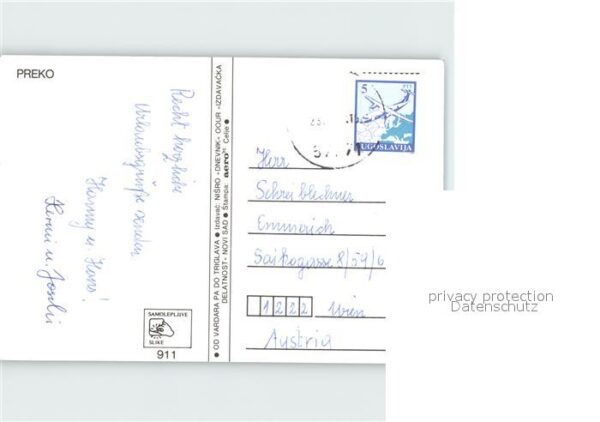 PREKO
Recht herzliche
Urlaubsgrüße senden
Hanny u. Hans!
Hermi u.
OD VARDARA PA DO TRIGLAVA ● Izdavač: NIŠRO »DNEVNIK« OOUR »IZDAVAČKA
DELATNOST« NOVI SAD ● Štampa: aero Celje ●
SAMOLEPLJIVE
SLIKE
911
5
JUGOSLAVIJA
Herr
Schreiblechner
Emmerich
Saikogasse 8/59/6
1222 Wien
Austria
privacy protection
Datenschutz